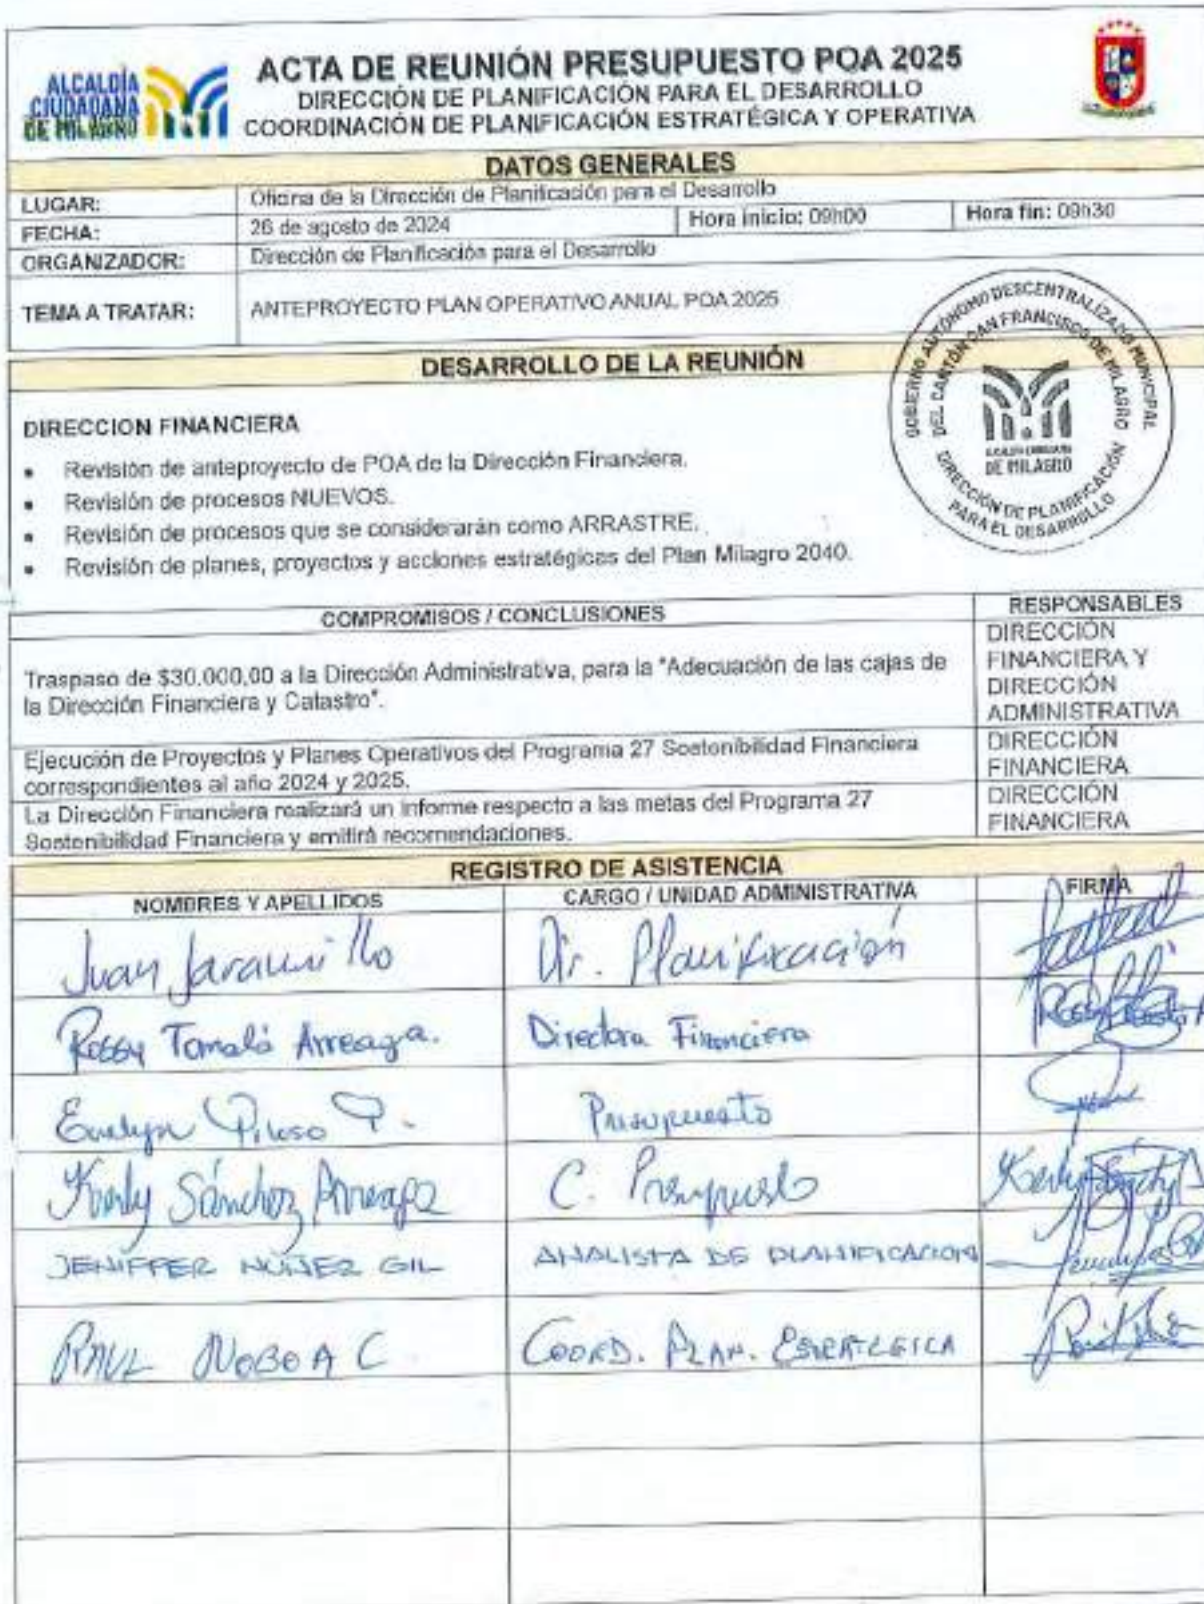 ALCALDÍA
CIUDADANA
DE MILAGRO
ACTA DE REUNIÓN PRESUPUESTO POA 2025
DIRECCIÓN DE PLANIFICACIÓN PARA EL DESARROLLO
COORDINACIÓN DE PLANIFICACIÓN ESTRATÉGICA Y OPERATIVA
DATOS GENERALES
LUGAR: Oficina de la Dirección de Planificación para el Desarrollo
FECHA: 26 de agosto de 2024 Hora inicio: 09h00 Hora fin: 09h30
ORGANIZADOR: Dirección de Planificación para el Desarrollo
TEMA A TRATAR: ANTEPROYECTO PLAN OPERATIVO ANUAL POA 2025
GOBIERNO AUTÓNOMO DESCENTRALIZADO MUNICIPAL
DEL CANTÓN SAN FRANCISCO DE MILAGRO
DE MILAGRO
DIRECCIÓN DE PLANIFICACIÓN
PARA EL DESARROLLO
DESARROLLO DE LA REUNIÓN
DIRECCION FINANCIERA
• Revisión de anteproyecto de POA de la Dirección Financiera.
• Revisión de procesos NUEVOS.
• Revisión de procesos que se considerarán como ARRASTRE.
• Revisión de planes, proyectos y acciones estratégicas del Plan Milagro 2040.
COMPROMISOS / CONCLUSIONES RESPONSABLES
Traspaso de $30.000,00 a la Dirección Administrativa, para la "Adecuación de las cajas de
la Dirección Financiera y Catastro".
DIRECCIÓN
FINANCIERA Y
DIRECCIÓN
ADMINISTRATIVA
Ejecución de Proyectos y Planes Operativos del Programa 27 Sostenibilidad Financiera
correspondientes al año 2024 y 2025.
DIRECCIÓN
FINANCIERA
La Dirección Financiera realizará un informe respecto a las metas del Programa 27
Sostenibilidad Financiera y emitirá recomendaciones.
DIRECCIÓN
FINANCIERA
REGISTRO DE ASISTENCIA
NOMBRES Y APELLIDOS CARGO / UNIDAD ADMINISTRATIVA FIRMA
Juan Jaramillo Dir. Planificación
Rossy Tomalá Arreaga. Directora Financiera
Evelyn P. Presupuesto
Kerly Sánchez Arreaga C. Presupuesto
JENIFFER NÚÑEZ GIL ANALISTA DE PLANIFICACION
RAUL NOBOA C COORD. PLAN. ESTRATEGICA